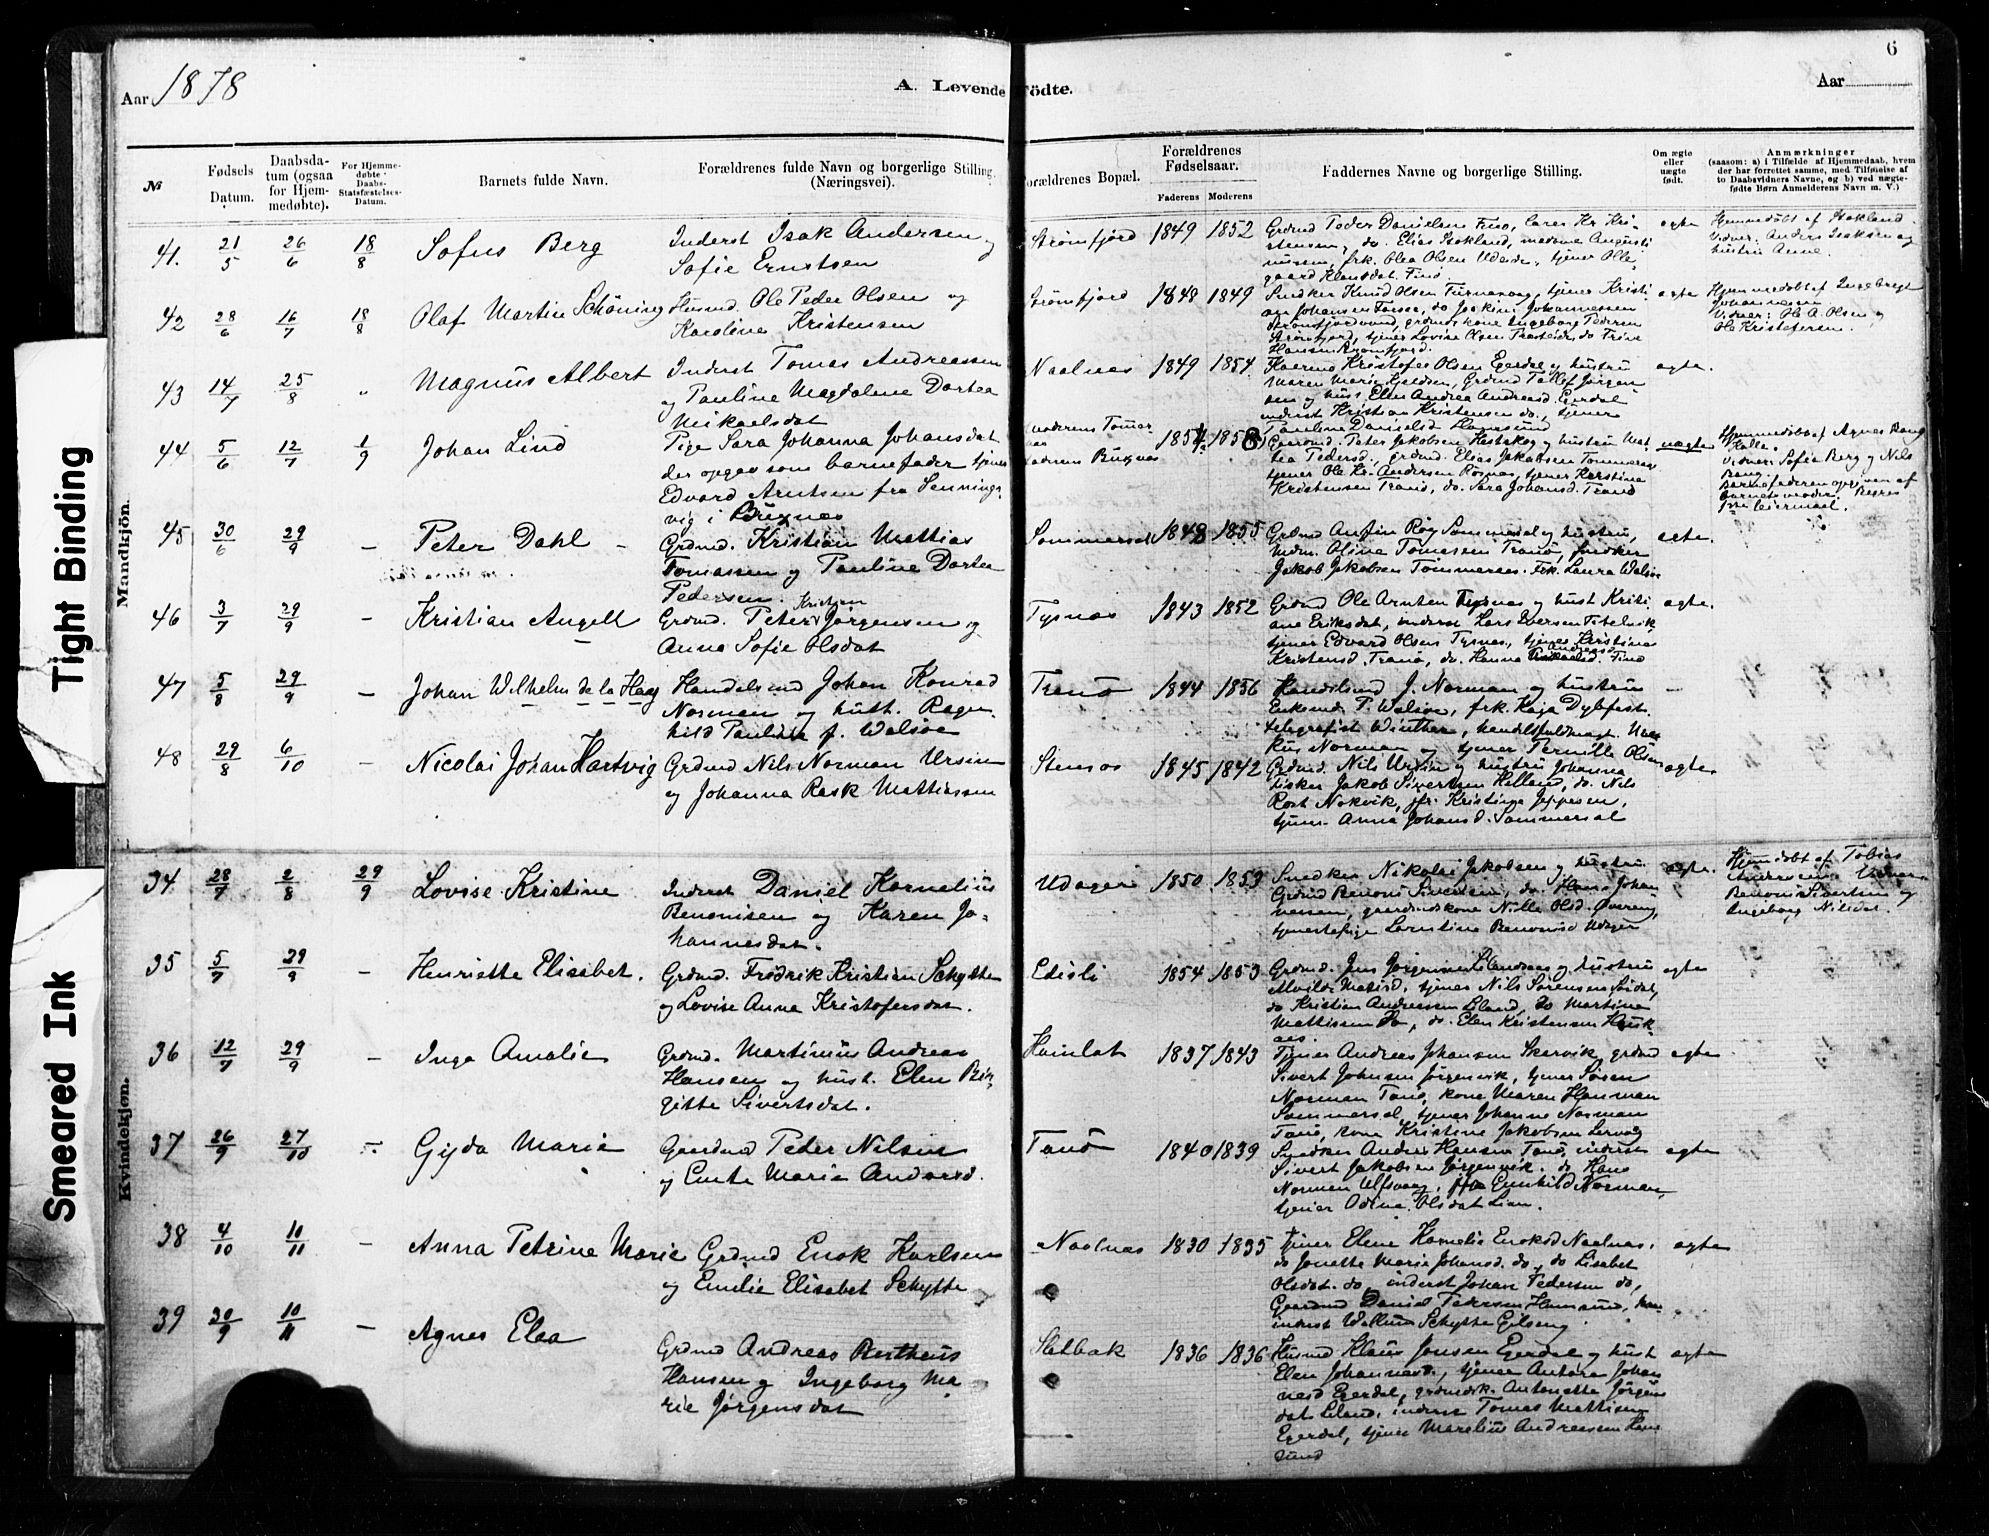 6
Aar 1878
A. Levende Födte.
Aar
№
Fødsels Datum.
Daabsdatum (ogsaa for Hjemmedøbte).
For Hjemmedøbte Daabs-Statsfæstelses-Datum.
Barnets fulde Navn.
Forældrenes fulde Navn og borgerlige Stilling (Næringsvei).
Forældrenes Bopæl.
Forældrenes Fødselsaar.
Faderens Moderens
Faddernes Navne og borgerlige Stilling.
Om ægte eller uægte født.
Anmærkninger
(saasom: a) i Tilfælde af Hjemmedaab, hvem der har forrettet samme, med Tilføielse af to Daabsvidners Navne, og b) ved uægtefødte Børn Anmelderens Navn m. V.)
Mandkjön.
41. 21/5 26/6 18/8 Sofus Berg
Inderst Isak Andersen og
Sofie Ernstsen
Strømfjord 1849 1852
Grdmd Peder Danielsen Finø, Lars Kr. Kri-
stensen, do. Elias Isakland, madame Augusti
nussen, frk. Olea Olsen, tjener Olle-
gaard Klausdat. Finø
ægte
Hjemmedøbt af Isakland.
Vidner: Anders Isaksen og
hustru Anne.
42 28/6 16/7 18/8 Olaf Martin Schöning
Husmd. Ole Peder Olsen og
Karoline Kristensen
Strømfjord 1848 1849
Snedker Knud Olsen, tjener Kristi-
an Johansen, do Joakim Johannessen
Strømfjord, grdmds kone Ingeborg Pedersen
Strømfjord, tjener Lovise Olsen, do Trine
Hansen Strømfjord.
ægte
Hjemmedøbt af Ingebrigt
Johannesen
Vidner: Ole A. Olsen og
Ole Kristofersen.
43 14/7 25/8 " Magnus Albert
Inderst Tomas Andreassen
og Pauline Magdalene Dortea
Mikaelsdat
Naalnes 1849 1854
Kristofer Olsen Egerdal og hustru
Maren Marie, Grdmd Tollef Jörgen
sen og hust. Elen Andrea Andreasd. Egerdal
inderst Kristian Kristensen do., tjener
Pauline Danielsd.
ægte.
44 5/6 12/7 1/9 Johan Lind
Pige Sara Johanna Johansdat
der opgav som barnefader tjener
Edvard Arntsen fra Sennings-
vig i Buxnæs
Moderens Tommer
aas
Faderens Buxnæs
1854 1858
Gaardmd. Peter Jakobsen og hustru Mat
tea Pedersd., grdmd. Elias Jakobsen Tommeraas
tjener Ole Kr. Andersen Rösnæs, tjener Kerstine
Kristensen Tranö, do. Sara Johansd. Tranö
uægte
Hjemmedøbt af Agnes Bang
Kalle.
Vidner: Sofie Berg og Nils
Bang.
Barnefaderen opgiven af
barnets moder. Begges
1ste leiermaal.
45 30/6 29/9 – Peter Dahl –
Grdmd. Kristian Mattias
Tomassen og Pauline Dortea
Pedersen.
Sommersæl 1848 1855
Grdmd Anfin Roy Sommersæl og hustru,
Mdm. Oline Tomassen Tranø, snedker
Jakob Jakobsen Tommeraas. Frk. Laura Walsøe
ægte.
46 3/7 29/9 – Kristian Angell
Grdmd. Peter Kristian Jørgensen og
Anna Sofie Olsdat
Tysnæs 1843 1852
Grdmd Ole Arntsen Tysnæs og hust Kristi
ane Eriksdat, inderst Lars Iversen,
tjener Edvard Olsen Tysnes, tjener Kerstine
Kristensd. Tranø, do. Hanna Andreasd. Finø
ægte.
47 5/8 29/9 – Johan Wilhelm de la Hay
Handelsmd Johan Konrad
Norman og hust. Ragn-
hild Pauline f. Walsøe
Tranö 1844 1856
Handelsmd J. Norman og hustru
Enkemd. P. Walsøe, frk. Kaja Dybfest.
telegrafist Winther, handelsfuldmægt.
Norman og tjener Pernille Olsen
–
48 29/8 6/10 – Nicolai Johan Hartvig
Grdmd Nils Norman Ursin
og Johanna Rask Mattiassen
Stensøs 1845 1842
Grdmd. Nils Ursin og hustru Johanna
fisker Jakob Sivertsen Helland, do. Nils
Rost Nakvik, jfr. Kristine Jeppesen,
tjener Anna Johansd. Sommersæl
ægte
Kvindekjøn.
34 28/7 2/8 29/9 Lovise Kristine
Inderst Daniel Kornelius
Benonisen og Karen Jo-
hannesdat.
Udager 1850 1853
Snedker Nikolai Jakobsen og hustru
Grdmd Benoni Sivertsen, do. Hans Johan
nessen, gaardmdskone Nille Olsd. Øvereng,
tjenestepige Benonisd Udager
ægte.
Hjemdøbt af Tobias
Andersen. Vidner:
Benoni Sivertsen og
Ingeborg Nilsdat.
35 5/7 29/9 – Henriette Elisabet.
Grdmd. Fredrik Kristian Schytte
og Lovise Anna Kristofersdat.
Edisli 1854 1853
Grdmd. Jens Jørgensen og hustru
Alvilde Matisd, tjener Nils Sörensen,
do Kristian Andreassen Leland, do Martine
Mattissen do, do. Elen Kristensen Hauk-
aas.
ægte
36 12/7 29/9 – Inga Amalie
Grdmd. Martinius Andreas
Hansen og hust. Elen Bir-
gitte Sivertsdat.
Hamlot 1837 1843
Tjener Andreas Johansen Skarvik, grdmd
Sivert Johnsen Jørgensvik, tjener Sören
Norman Tanö, kone Maren Hanman
Sommersæl, tjener Johanne Norman
Tanö, kone Kristine Jakobsen
ægte
37 26/9 27/10 – Gyda Marie
Gaardmd Peter Nilsen
og Emte Marie Andersd.
Tanö 1840 1839
Snedker Anders Hansen Tanö, inderst
Sivert Jakobsen Jørgensvik, do Hans
Norman Ulfsvaag, Gunhild Norman,
tjener Odine Olsdat Lian.
ægte
38 4/10 10/11 – Anna Petrine Marie
Grdmd Enok Karlsen
og Emilie Elisabet Schytte
Naalnes 1830 1835
tjener Elene Kornelie Enoksd Naalnes,
do Jonette Marie Johansd. do, do Lisabet
Olsdat. do, inderst Johan Pedersen do,
Gaardmd Daniel Pedersen Hamsund,
inderst Schytte Gilseng.
ægte
39 30/9 10/11 – Agnes Elea
Grdmd Andreas Bertheus
Hansen og Ingeborg Ma-
rie Jørgensdat
Sletbak 1836 1836
Husmd Klaus Jonsen Egerdal og hust
Elen Johannesd., tjener Antøra Johan
nesd Egerdal, grdmdsk. Antonette Jørgens
dat Leland, inderst Tomas Mattisen
Egerdal, tjener Marelius Andreassen Ham
sund
ægte
Tight Binding
Smeared Ink